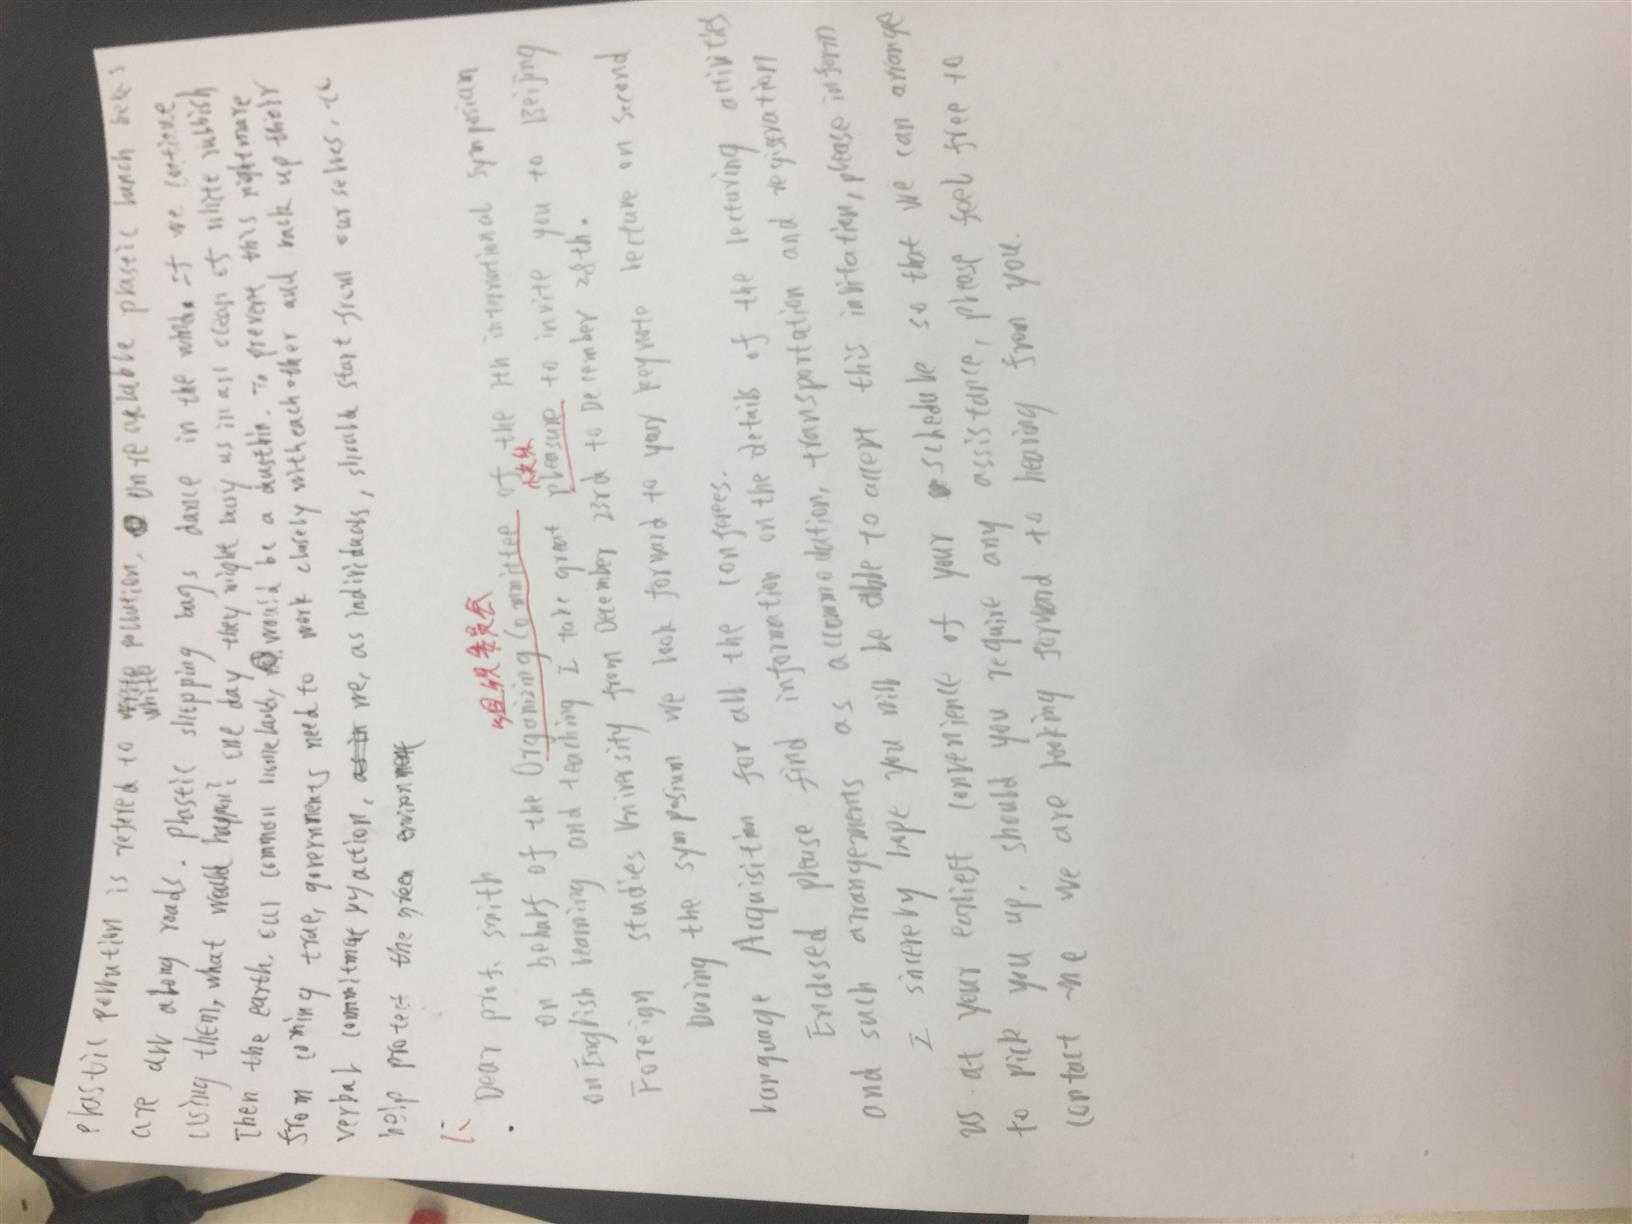 Plastic pollution is refered to white pollution. unrecyclable plastic lunch boxes
are all along roads. Plastic shopping bags dance in the If we continue
using them, what would happen? one day they might bury us in an ocean of white rubbish
Then the earth, our common homeland, would be a dustbin. To prevent this nightmare
from coming true, governments need to work closely with each other and back up their
verbal commitment by action, we, as individuals, should start from ourselves, to
help protect the green environment
Dear prof. smith
组织委员会
on behalf of the Organizing Committee of the 7th international symposium
on English learning and teaching I take great pleasure to invite you to Beijing
Foreign studies University from December 23rd to December 28th.
During the symposium we look forward to your keynote lecture on second
language Acquisition for all the conferees.
Enclosed please find information on the details of the lecturing activities
and such arrangements as accommodation, transportation and registration
I sincerely hope you will be able to accept this invitation, please inform
us at your earliest convenience of your schedule so that we can arrange
to pick you up. should you require any assistance, please feel free to
contact me we are looking forward to hearing from you.